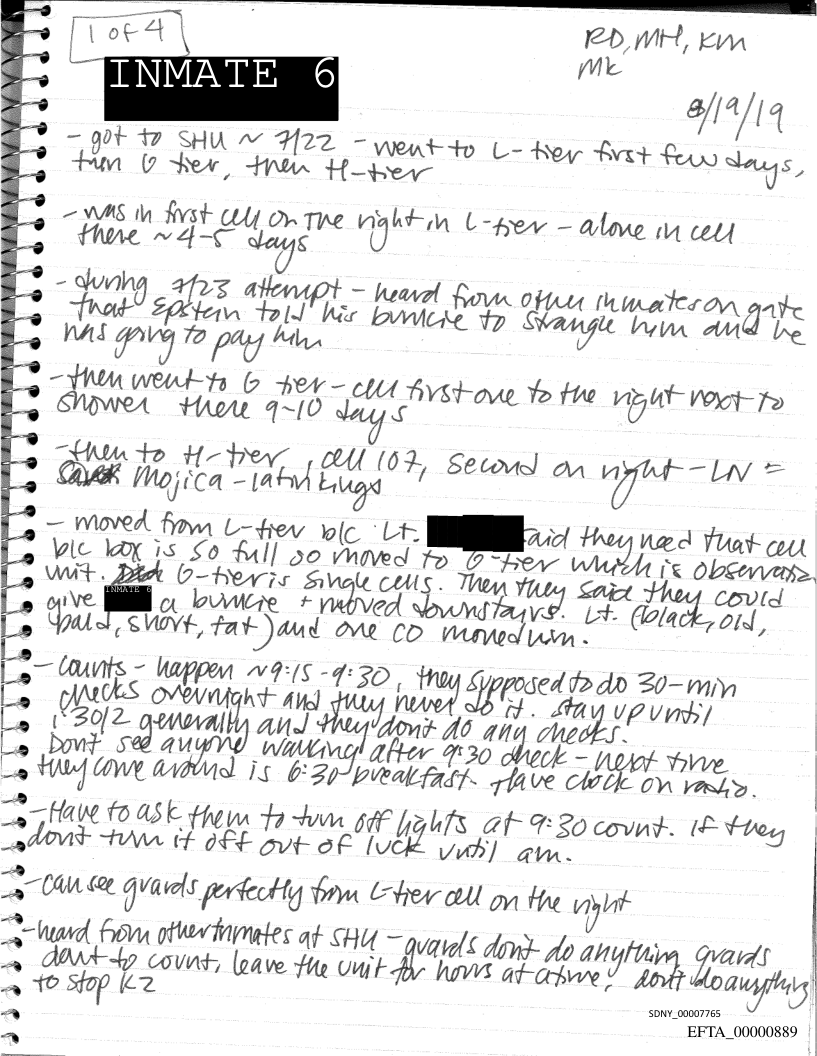 1 of 4
RD, MH, KM
MK
INMATE 6
8/19/19
- got to SHU ~ 7/22 - went to L-tier first few days,
then G tier, then H-tier
- was in first cell on the right in L-tier - alone in cell
there ~4-5 days
- during 7/23 attempt - heard from other inmates on gate
that Epstein told his bunkie to strangle him and he
was going to pay him
- then went to G tier - cell first one to the right next to
shower there 9-10 days
- then to H-tier, cell 107, second on right - LN =
Mojica - latin kings
- moved from L-tier b/c Lt. said they need that cell
b/c box is so full so moved to G-tier which is observation
unit. G-tier is single cells. Then they said they could
give INMATE 6 a bunkie + moved downstairs. Lt. (black, old,
bald, short, fat) and one CO moved him.
- Counts - happen ~9:15-9:30, they supposed to do 30-min
checks overnight and they never do it. stay up until
1:30/2 generally and they don't do any checks.
Don't see anyone walking after 9:30 check - next time
they come around is 6:30 breakfast. Have clock on radio.
- Have to ask them to turn off lights at 9:30 count. if they
don't turn it off out of luck until am.
- can see guards perfectly from L-tier cell on the right
- heard from other inmates at SHU - guards don't do anything guards
don't to count, leave the unit for hours at a time, don't do anything
to stop K2
SDNY_00007765
EFTA_00000889